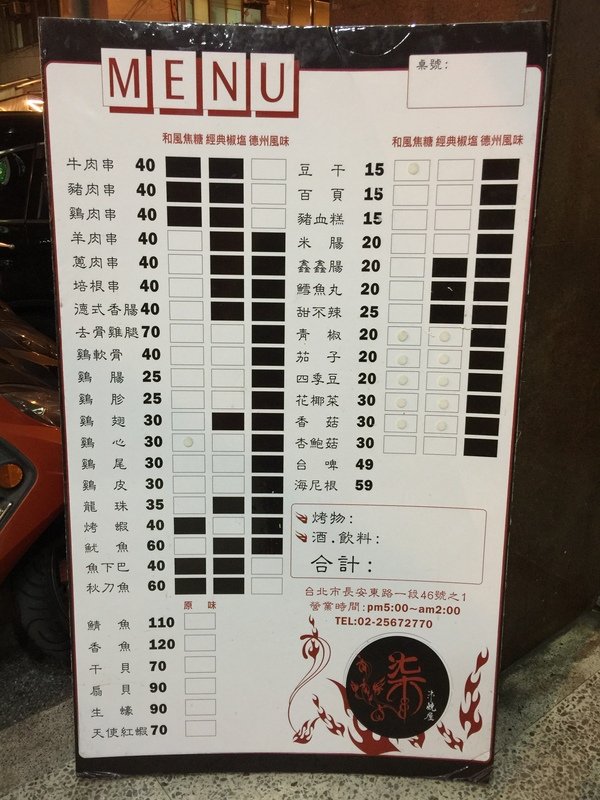 MENU
桌號:
和風焦糖 經典椒塩 德州風味
牛肉串 40
豬肉串 40
鷄肉串 40
羊肉串 40
蔥肉串 40
培根串 40
德式香腸 40
去骨雞腿 70
鷄軟骨 40
鷄腸 25
鷄胗 25
鷄翅 30
鷄心 30
鷄尾 30
鷄皮 30
龍珠 35
烤蝦 40
魷魚 60
魚下巴 40
秋刀魚 60
原味
鯖魚 110
香魚 120
干貝 70
扇貝 90
生蠔 90
天使紅蝦 70
和風焦糖 經典椒塩 德州風味
豆干 15
百頁 15
豬血糕 15
米腸 20
鑫鑫腸 20
鱈魚丸 20
甜不辣 25
青椒 20
茄子 20
四季豆 20
花椰菜 30
香菇 30
杏鮑菇 30
台啤 49
海尼根 59
烤物:
酒.飲料:
合計:
台北市長安東路一段46號之1
營業時間:pm5:00~am2:00
TEL:02-25672770
柒